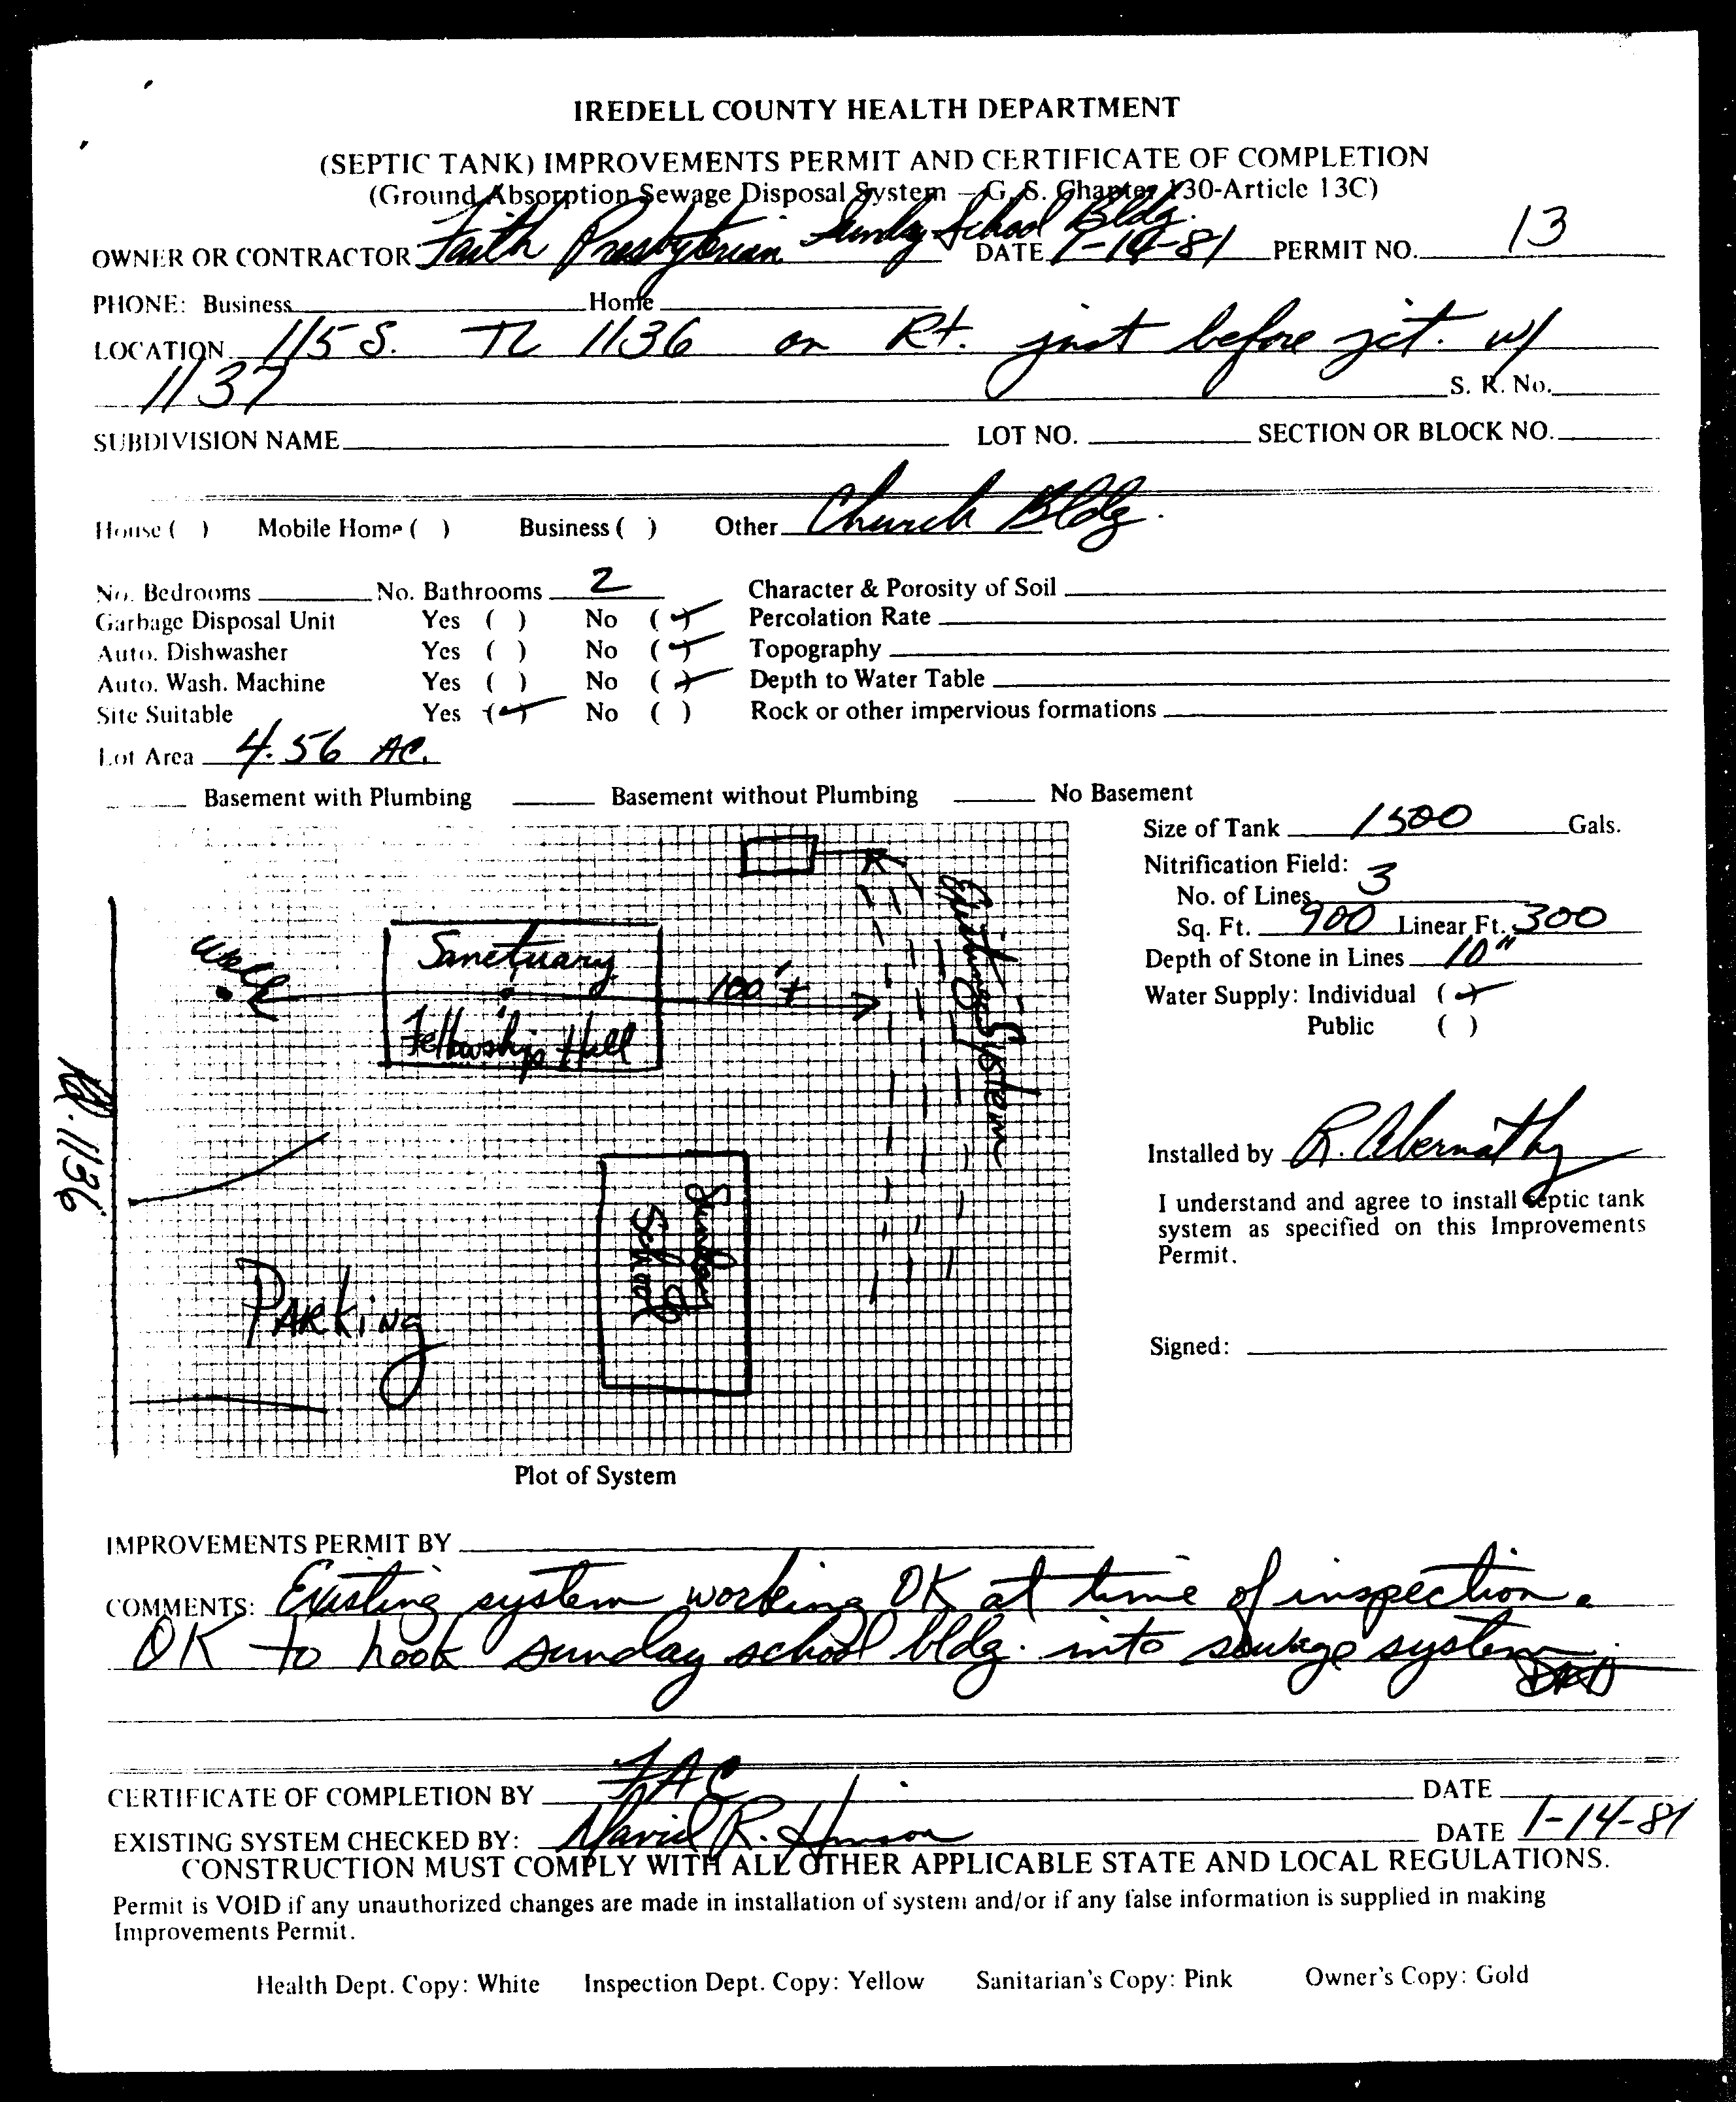 IREDELL COUNTY HEALTH DEPARTMENT
(SEPTIC TANK) IMPROVEMENTS PERMIT AND CERTIFICATE OF COMPLETION
(Ground Absorption Sewage Disposal System – G. S. Chapter 130-Article 13C)
OWNER OR CONTRACTOR Faith Presbyterian Sunday School Bldg. DATE 1-14-81 PERMIT NO. 13
PHONE: Business Home
LOCATION 115 S. TL 1136 on Rt. just before jct. w/
1137 S. R. No.
SUBDIVISION NAME LOT NO. SECTION OR BLOCK NO.
House ( ) Mobile Home ( ) Business ( ) Other Church Bldg.
No. Bedrooms No. Bathrooms 2 Character & Porosity of Soil
Garbage Disposal Unit Yes ( ) No (✓) Percolation Rate
Auto. Dishwasher Yes ( ) No (✓) Topography
Auto. Wash. Machine Yes ( ) No (✓) Depth to Water Table
Site Suitable Yes (✓) No ( ) Rock or other impervious formations
Lot Area 4.56 AC.
Basement with Plumbing Basement without Plumbing No Basement
Size of Tank 1500 Gals.
Nitrification Field:
No. of Lines 3
Sq. Ft. 900 Linear Ft. 300
Depth of Stone in Lines 10"
Water Supply: Individual (✓)
Public ( )
Installed by R. Abernathy
I understand and agree to install septic tank
system as specified on this Improvements
Permit.
Signed:
Well
Sanctuary
Fellowship Hall
100'+
Existing System
Rd. 1136
Sunday
School
Parking
Plot of System
IMPROVEMENTS PERMIT BY
COMMENTS: Existing system working OK at time of inspection.
OK to hook sunday school bldg. into sewage system.
CERTIFICATE OF COMPLETION BY DATE
EXISTING SYSTEM CHECKED BY: David R. DATE 1-14-81
CONSTRUCTION MUST COMPLY WITH ALL OTHER APPLICABLE STATE AND LOCAL REGULATIONS.
Permit is VOID if any unauthorized changes are made in installation of system and/or if any false information is supplied in making
Improvements Permit.
Health Dept. Copy: White Inspection Dept. Copy: Yellow Sanitarian's Copy: Pink Owner's Copy: Gold